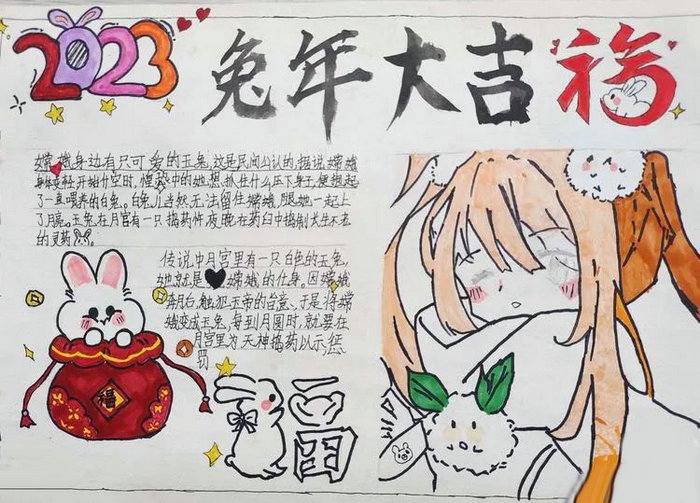 2023
兔年大吉福
嫦娥身边有只可爱的玉兔,这是民间公认的,据说嫦娥
开始升空时,惶恐中的她想,抓住什么压下身子,便抱起
了一直喂养的白兔。白兔儿当然无法留住嫦娥,随她一起上
了月亮。玉兔在月宫有一只捣药杵,夜晚在药臼中捣制长生不老
的灵药。
传说中月宫里有一只白色的玉兔,
她就是嫦娥的化身。因嫦娥
奔月后,触犯玉帝的旨意,于是将嫦
娥变成玉兔,每到月圆时,就要在
月宫里为天神捣药以示惩
罚
福